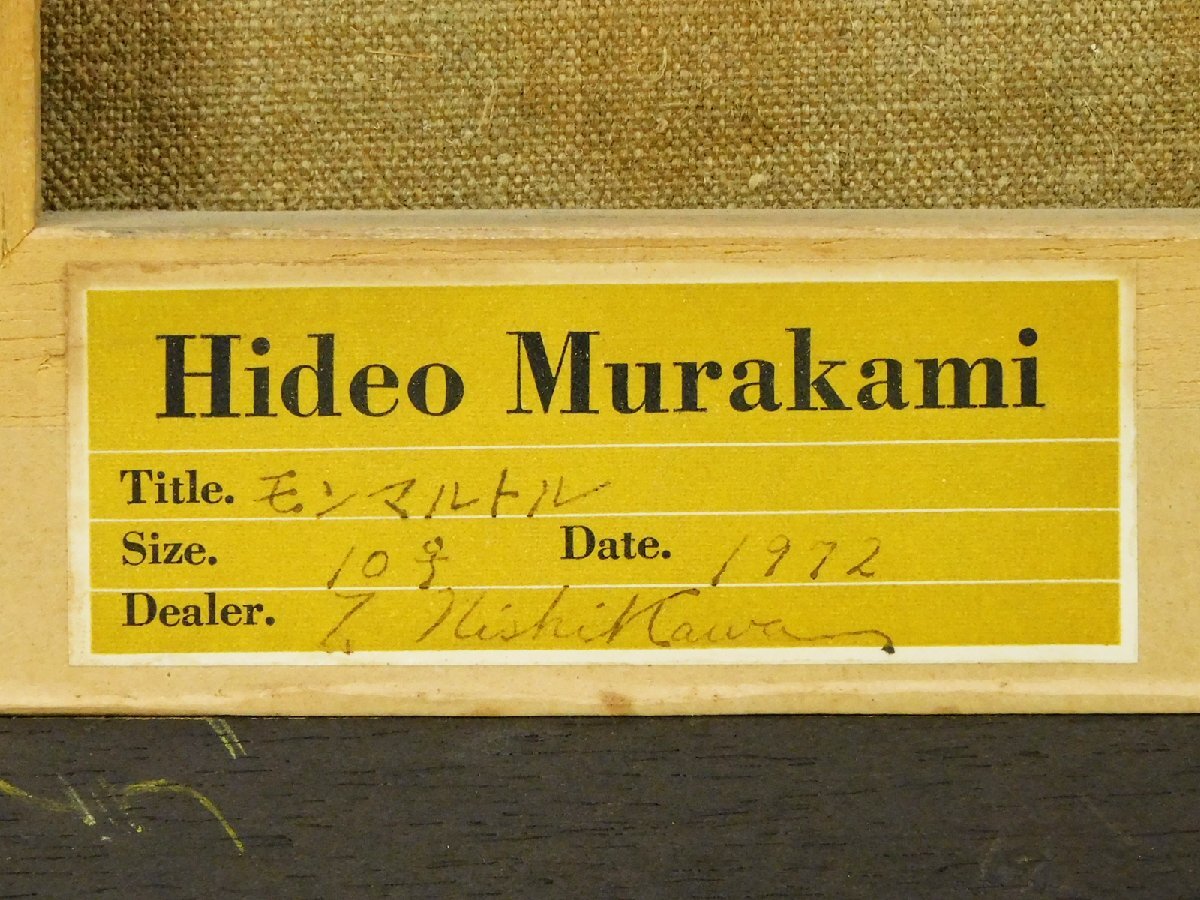 Hideo Murakami
Title. モンマルトル
Size. 10号 Date. 1972
Dealer. T. Nishikawa